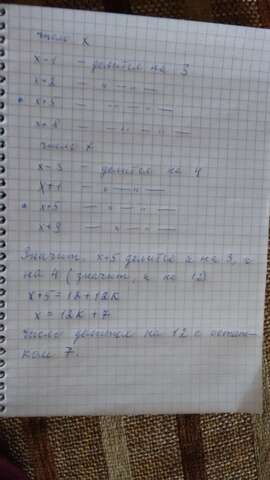 Число x
x-1 - делится на 3
x+2 - " -
* x+5 - " -
x+8 - " -
число x
x-3 - делится на 4
x+1 - " -
* x+5 - " -
x+9 - " -
Значит, x+5 делится и на 3, и
на 4 (значит, и на 12)
x+5=12+12k
x=12k+7
Число делится на 12 с остат-
ком 7.